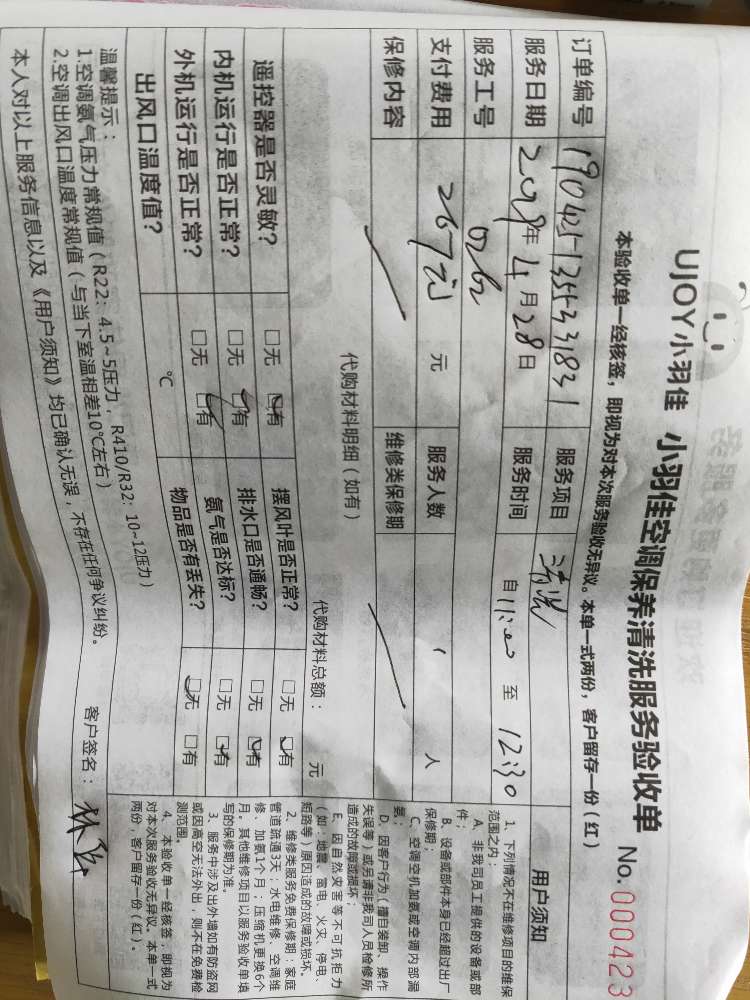 UJOY小羽佳 小羽佳空调保养清洗服务验收单 No.000423
本验收单一经核签，即视为对本次服务验收无异议。本单一式两份，客户留存一份（红）
订单编号 1904251355331831 服务项目 清洗
服务日期 2019年4月28日 服务时间 自 11:00 至 12:30
服务工号
支付费用 267元 元 服务人数 1 人
保修内容 维修类保修期
代购材料明细（如有） 代购材料总额： 元
遥控器是否灵敏？ □无 □有 摆风叶是否正常？ □无 □有
内机运行是否正常？ □无 □有 排水口是否通畅？ □无 □有
外机运行是否正常？ □无 □有 氨气是否达标？ □无 □有
出风口温度值？ ℃ 物品是否有丢失？ □无 □有
温馨提示：
1.空调氨气压力常规值（R22：4.5~5压力，R410/R32：10~12压力）
2.空调出风口温度常规值（与当下室温相差10℃左右）
本人对以上服务信息以及《用户须知》均已确认无误，不存在任何争议纠纷。 客户签名：
用户须知
1、下列情况不在维修项目的维保
范围之内：
A、非我司员工提供的设备或部
件；
B、设备或部件本身已经超过出厂
保修期；
C、空调空机加氨或空调内部漏
氨；
D、因客户行为（擅自装卸、操作
失误等）或另请非我司人员检修所
造成的故障或损坏；
E、因自然灾害等不可抗拒力
（如：地震、雷电、火灾、停电、
短路等）原因造成的故障或损坏。
2、维修类服务免费保修期：家庭
管道疏通3天；水电维修、空调维
修、加氨1个月；压缩机更换6个
月。其他维修项目以服务验收单填
写的保修期为准。
3、服务中涉及出外墙如有防盗网
或因高空无法外出，则不在免费检
测范围。
4、本验收单一经核签，即视为
对本次服务验收无异议。本单一式
两份，客户留存一份（红）。